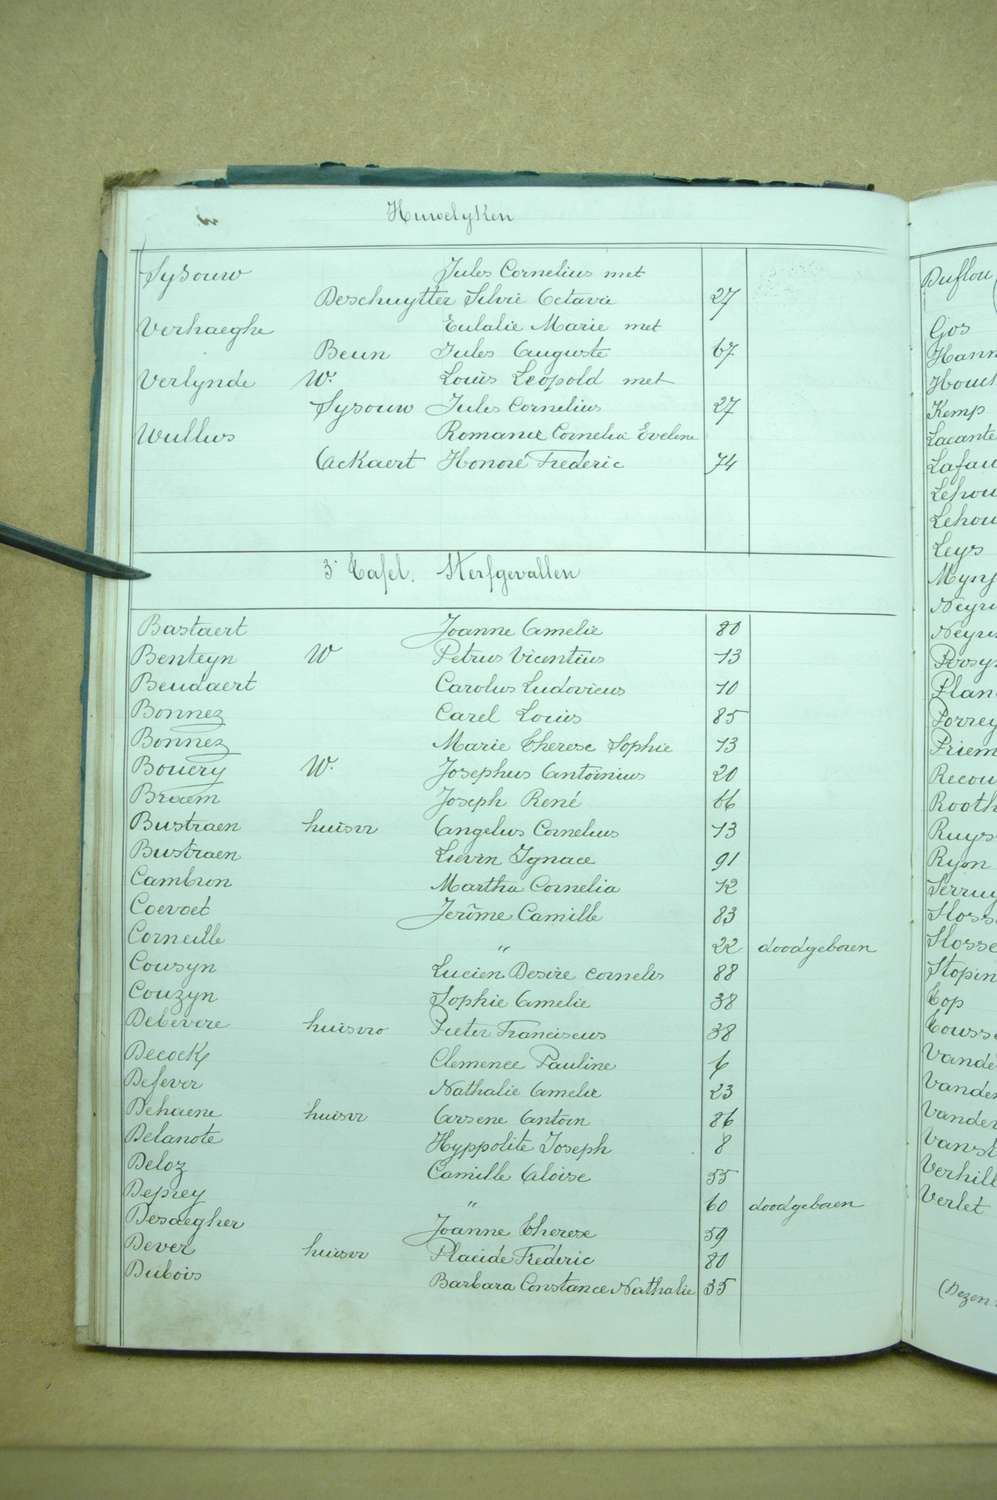 Huwelyken
Sysouw Jules Cornelius met
Deschuytter Silvie Octavie 27
Verhaeghe Eulalie Marie met
Beun Jules Auguste 67
Verlynde W. Louis Leopold met
Sysouw Jules Cornelius 27
Wullus Romanie Cornelie Eveline
Ockaert Honoré Frederic 74
3e Tafel. Sterfgevallen
Bastaert Joanne Amelie 80
Benteyn W Petrus Vicentius 13
Beudaert Carolus Ludovicus 10
Bonnez Carel Louis 85
Bonnez Marie Therese Sophie 13
Bouery W. Josephus Antoinius 20
Braem Joseph René 66
Bustraen huisvr Angelus Cornelius 13
Bustraen Lievin Ignace 91
Cambron Martha Cornelia 12
Coevoet Jerôme Camille 83
Corneille " 22 doodgeboren
Cousyn Lucien Desire Cornelis 88
Couzyn Sophie Amelie 38
Debevere huisvro Pieter Franciscus 38
Decock Clemence Pauline 6
Defever Nathalie Amelie 23
Dehaene huisvr Arsene Antoin 86
Delanote Hyppolite Joseph 8
Deloz Camille Aloise 55
Deprey " 60 doodgeboren
Desaegher Joanne Therese 59
Dever huisvr Placide Frederic 80
Dubois Barbara Constance Nathalie 35
Duflou
Gos
Hann
Houck
Kemp
Lacante
Lafau
Lehou
Lehou
Leys
Mynj
Neyri
Neyri
Persyn
Planc
Porrey
Priem
Recou
Rooth
Ruys
Ryon
Serruy
Slosse
Slosse
Stopin
Top
Tousse
Vande
Vander
Vander
Vanst
Verhill
Verlet
(Dezen